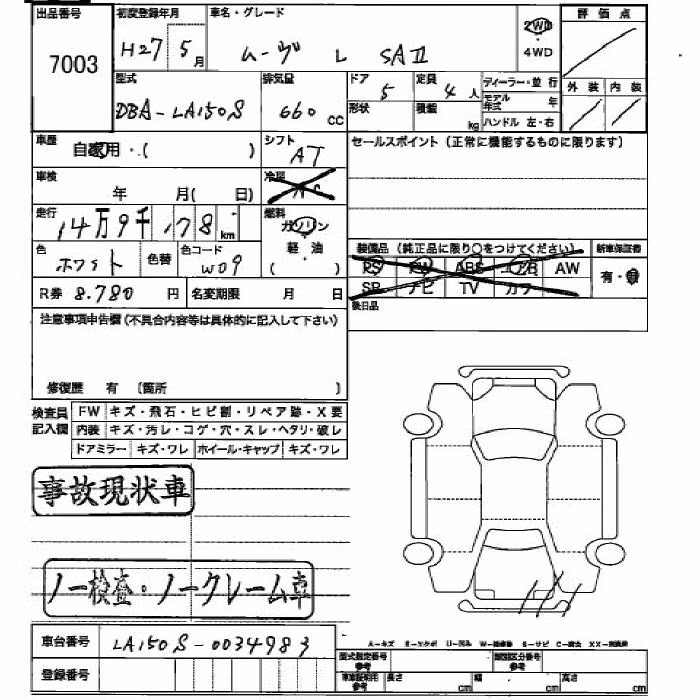 出品番号 初度登録年月 車名・グレード 2WD 評価点
7003 H27 5月 ムーヴ L SAⅡ 4WD
型式 排気量 ドア 定員 ディーラー・並行 外装 内装
DBA-LA150S 660 CC 5 4人 モデル年式 年
形状 積載 kg ハンドル 左・右
車歴 シフト セールスポイント (正常に機能するものに限ります)
自家用・( ) AT
車検 冷房
年 月( 日)
走行 燃料
14万9千178km ガソリン
色 色替 色コード 軽・油 装備品 (純正品に限り○をつけてください) 新車保証書
ホワイト W09 ( ) PS PW ABS エアB AW 有・無
R券 8.780円 名変期限 月 日 SR ナビ TV カワ
後日品
注意事項申告欄 (不具合内容等は具体的に記入して下さい)
修復歴 有 (箇所 )
検査員 FW キズ・飛石・ヒビ割・リペア跡・X要
記入欄 内装 キズ・汚レ・コゲ・穴・スレ・ヘタリ・破レ
ドアミラー キズ・ワレ ホイール・キャップ キズ・ワレ
事故現状車
ノー検査・ノークレーム車
車台番号 LA150S-0034983
登録番号
型式指定番号 参考 類別区分番号 参考
参考 長さ cm 幅 cm 高さ cm